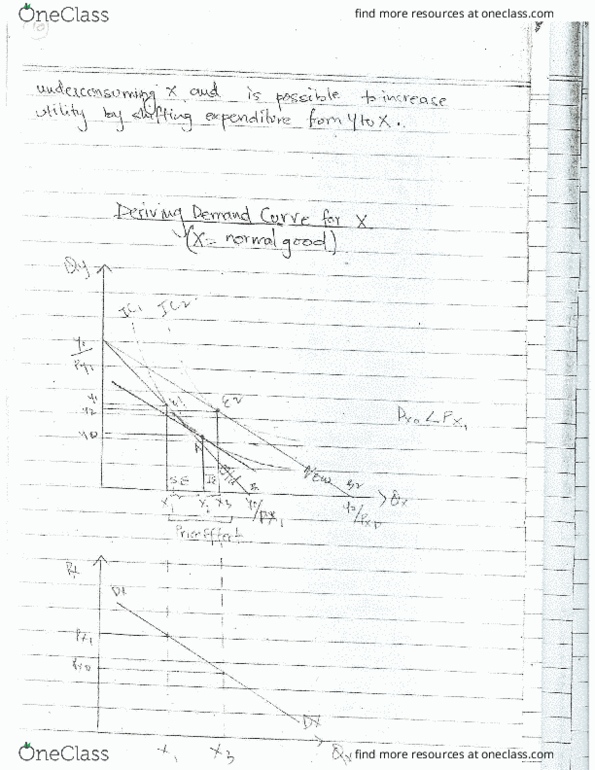 OneClass
find more resources at oneclass.com
underconsuming X and is possible to increase
utility by shifting expenditure from Y to X.
Deriving Demand Curve for X
(X = normal good)
Q.y
IC1 IC2
Y1
Py1
Y1
Y2
Y0
E2
A
Px0 < Px1
SE
IE
B2
New
X1
X3
Qx
Y0/Px1
Price Effect
Px1
Px0
DX
X1
X3
Qx
OneClass
find more resources at oneclass.com